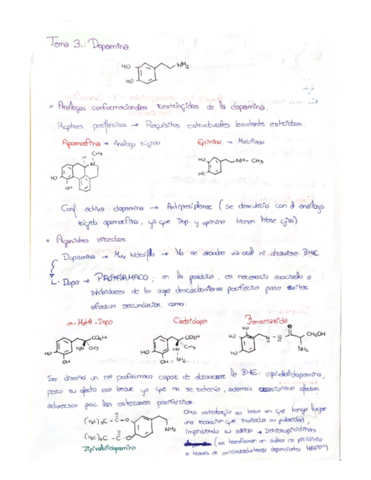 Tema 3: Dopamina
HO
HO
NH₂
• Análogos conformacionales restringidos de la dopamina.
Reptres periféricos → Requisitos estructurales bastante estrictos
Apomorfina → Análogo rígido
Epinina → Metilada
CH₃
N
HO
OH
HO
HO
NH-CH₃
Conf. activa dopamina → Antiperiplanar (se descubrió con el análogo
rígido apomorfina, ya que Dop y epinina tienen libre giro).
• Agonistas directos
Dopamina → Muy hidrófila → No se absorbe vía oral ni atraviesa BHE
L-Dopa → PROFÁRMACO, en la periferia, es necesario asociarlo a
inhibidores de la dopa descarboxilasa periférica para evitar
efectos secundarios, como:
α-Metil-Dopa
Carbidopa
Benserazida
Se diseñó un profármaco capaz de atravesar la BHE: dipivaloildopamina,
pero su efecto era breve ya que no se retenía, además ocasionaba efectos
adversos por las esterasas periféricas.
(H₃C)₃C-C-O
(H₃C)₃C-C-O
NH₂
Dipivaloildopamina
Otra estrategia se basa en que tenga lugar
una reacción que aumente su polaridad,
impidiendo su salida → Dihidropiridinas
(se transforman en sales de piridinio
a través de oxidorreductasas dependientes NADPH)